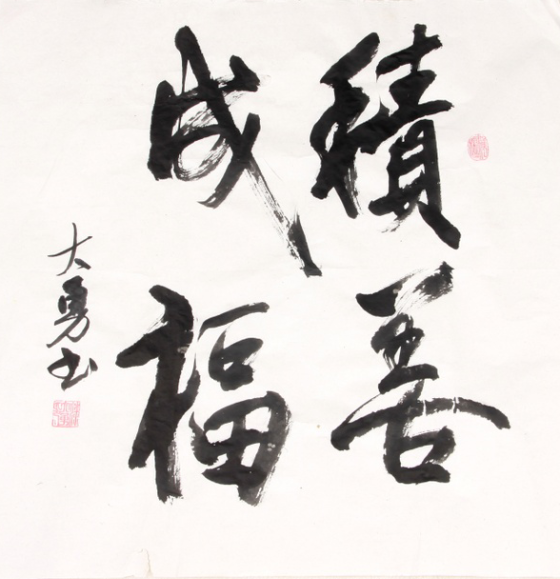 積善
成福
大勇书